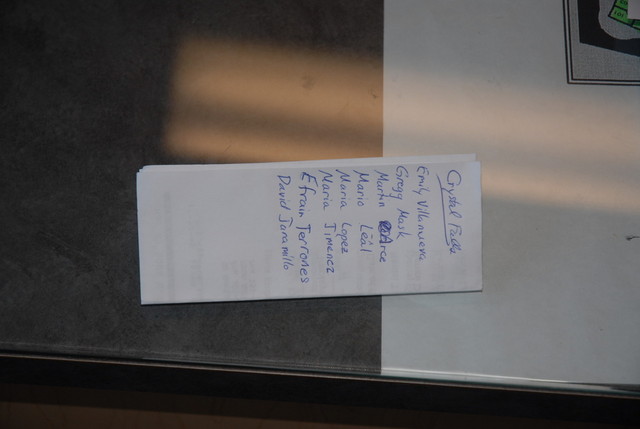 Crystal Falls
Emily Villanueva
Gregg Mask
Martin Arce
Mario Leal
Maria Lopez
Maria Jimenez
Efrain Terrones
David Jaramillo